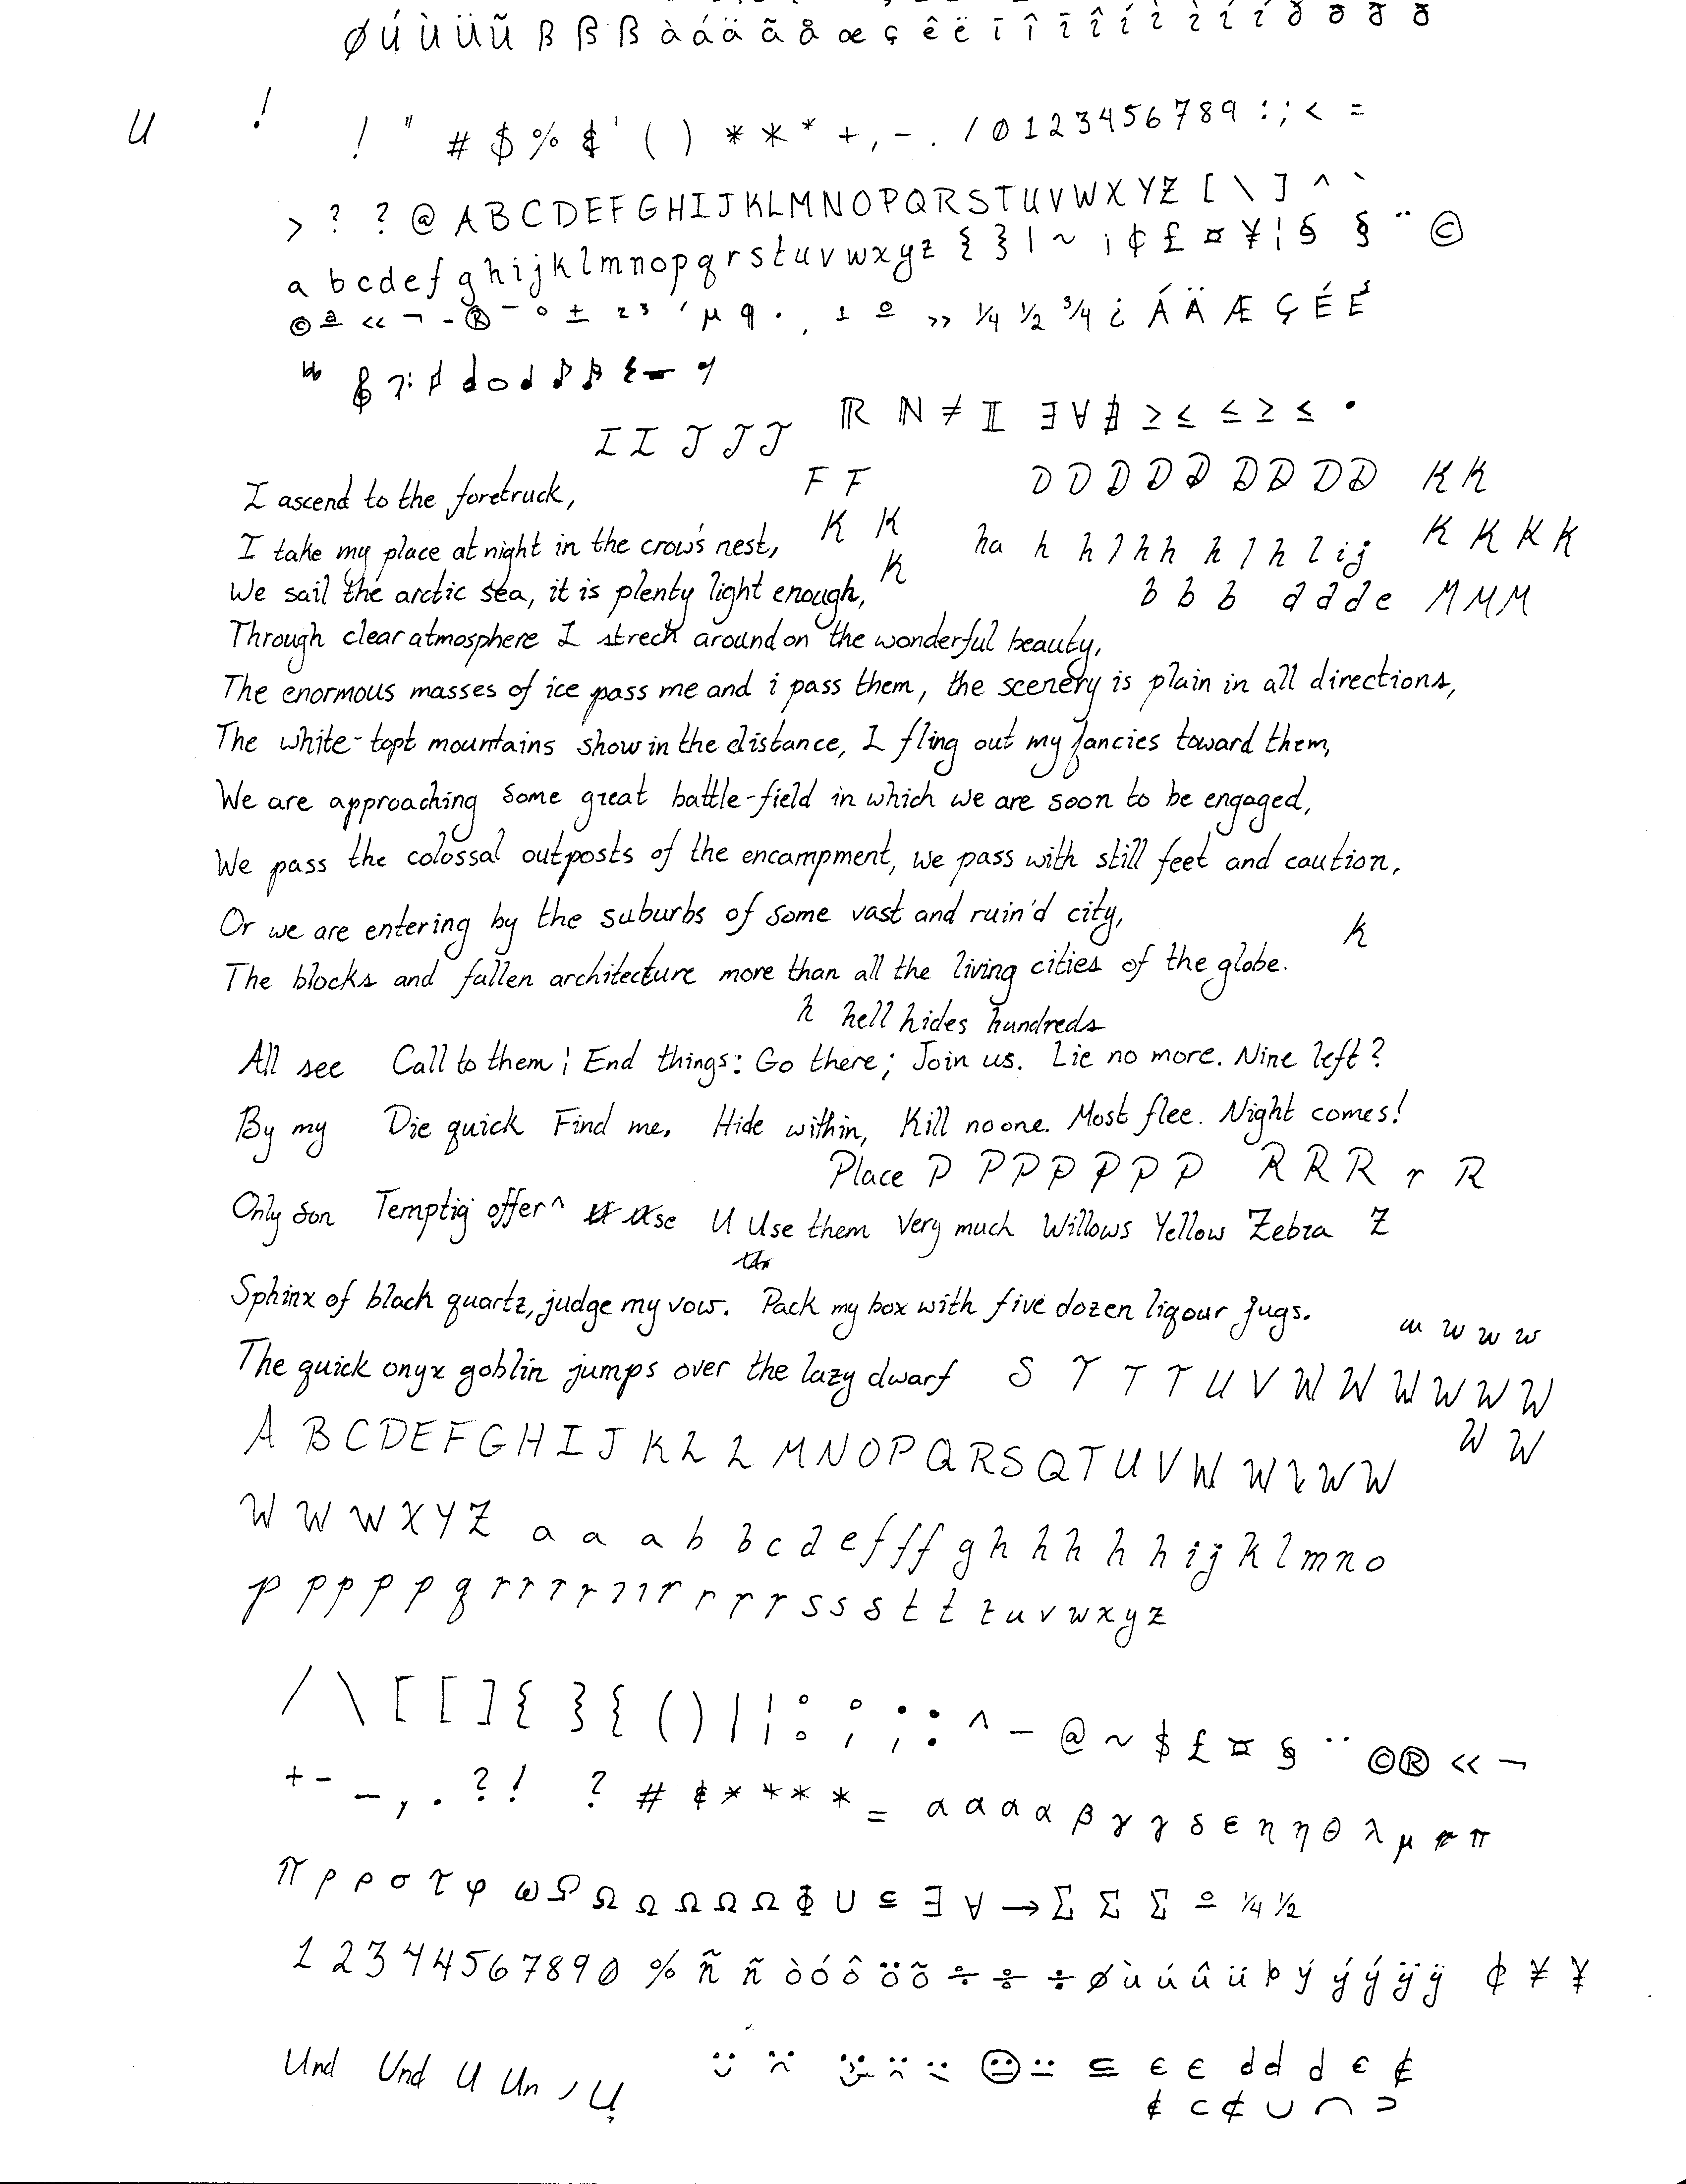 ø ú ù ü ũ ß ß ß à á ä ã å æ ç ê ë ī î ī î í ì ì í í ð ð ð ð
U ! ! " # $ % & ' ( ) * * * + , - . / 0 1 2 3 4 5 6 7 8 9 : ; < =
> ? ? @ A B C D E F G H I J K L M N O P Q R S T U V W X Y Z [ \ ] ^ `
a b c d e f g h i j k l m n o p q r s t u v w x y z { } | ~ ¡ ¢ £ ¤ ¥ ¦ § § ¨ ©
© ª « ¬ - ® ¯ ° ± 2 3 ´ µ q · ¸ 1 º » ¼ ½ ¾ ¿ Á Ä Æ Ç É É
I I J J J ℝ ℕ ≠ 𝕀 ∃ ∀ ∄ ≥ ≤ ≤ ≥ ≤ •
F F D D D D D D D D D K K
I ascend to the foretruck,
K K ha h h l h h h l h l i j K K K K
I take my place at night in the crow's nest,
K
We sail the arctic sea, it is plenty light enough,
b b b d d d e M M M
Through clear atmosphere I strech around on the wonderful beauty,
The enormous masses of ice pass me and i pass them, the scenery is plain in all directions,
The white-topt mountains show in the distance, I fling out my fancies toward them,
We are approaching some great battle-field in which we are soon to be engaged,
We pass the colossal outposts of the encampment, we pass with still feet and caution,
Or we are entering by the suburbs of some vast and ruin'd city,
k
The blocks and fallen architecture more than all the living cities of the globe.
h hell hides hundreds
All see Call to them ¦ End things: Go there; Join us. Lie no more. Nine left?
By my Die quick Find me. Hide within, Kill no one. Most flee. Night comes!
Place P P P P P P P R R R r R
Only son Temptig offer^ se U Use them Very much Willows Yellow Zebra Z
Sphinx of black quartz, judge my vow. Pack my box with five dozen liqour jugs.
w w w w
The quick onyx goblin jumps over the lazy dwarf S T T T U V W W W W W W
W W
A B C D E F G H I J K L L M N O P Q R S Q T U V W W W W
W W W X Y Z a a a b b c d e f f f g h h h h h i j k l m n o
p p p p p q r r r r r r r r r r r s s s t t t u v w x y z
/ \ [ [ ] { } { ( ) | ¦ : ; ; : ^ - @ ~ $ £ ¤ § ¨ © ® « ¬
+ - - , . ? ! ? # & * * * * = α α α α β γ γ δ ε η η θ λ μ π
π ρ ρ σ τ φ ω Ω Ω Ω Ω Ω Ω Φ U ⊆ ∃ ∀ → Σ Σ Σ º ¼ ½
1 2 3 4 4 5 6 7 8 9 0 % ñ ñ ò ó ô ö õ ÷ ÷ ÷ ø ù ú û ü þ ý ý ý ÿ ÿ ¢ ¥ ¥
Und Und U Un , Ų ⊆ ∈ ∈ d d d ∈ ¢
¢ ⊂ ⊄ ∪ ∩ ⊃